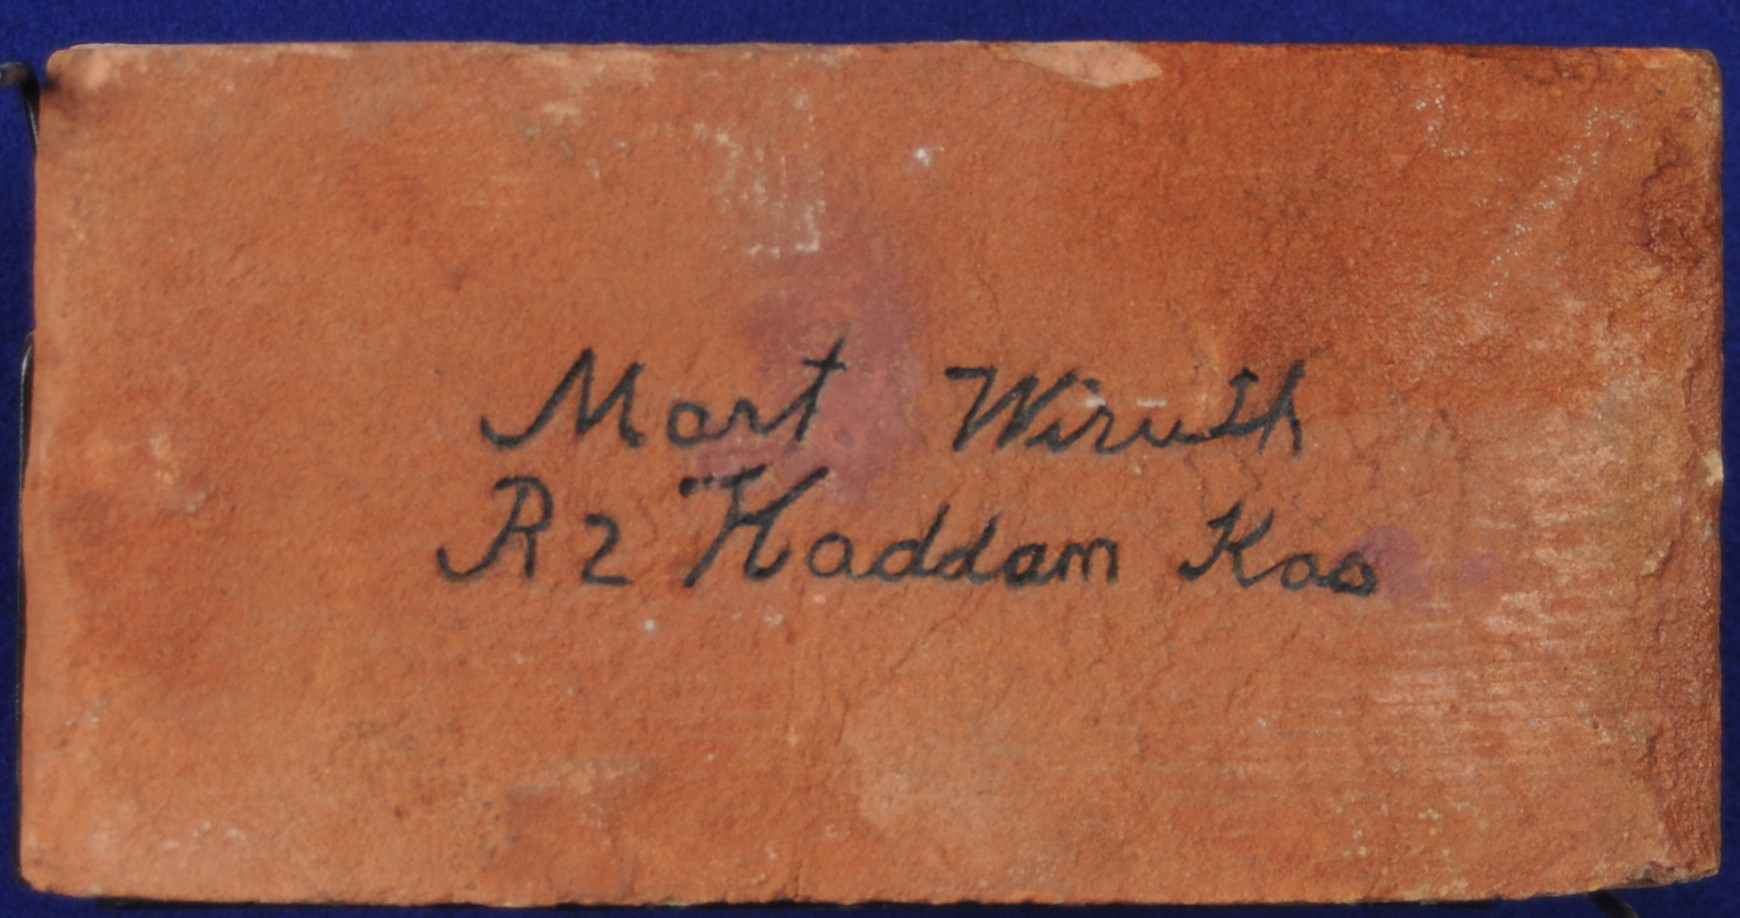 Mart Wiruth
R2 Haddam Kas